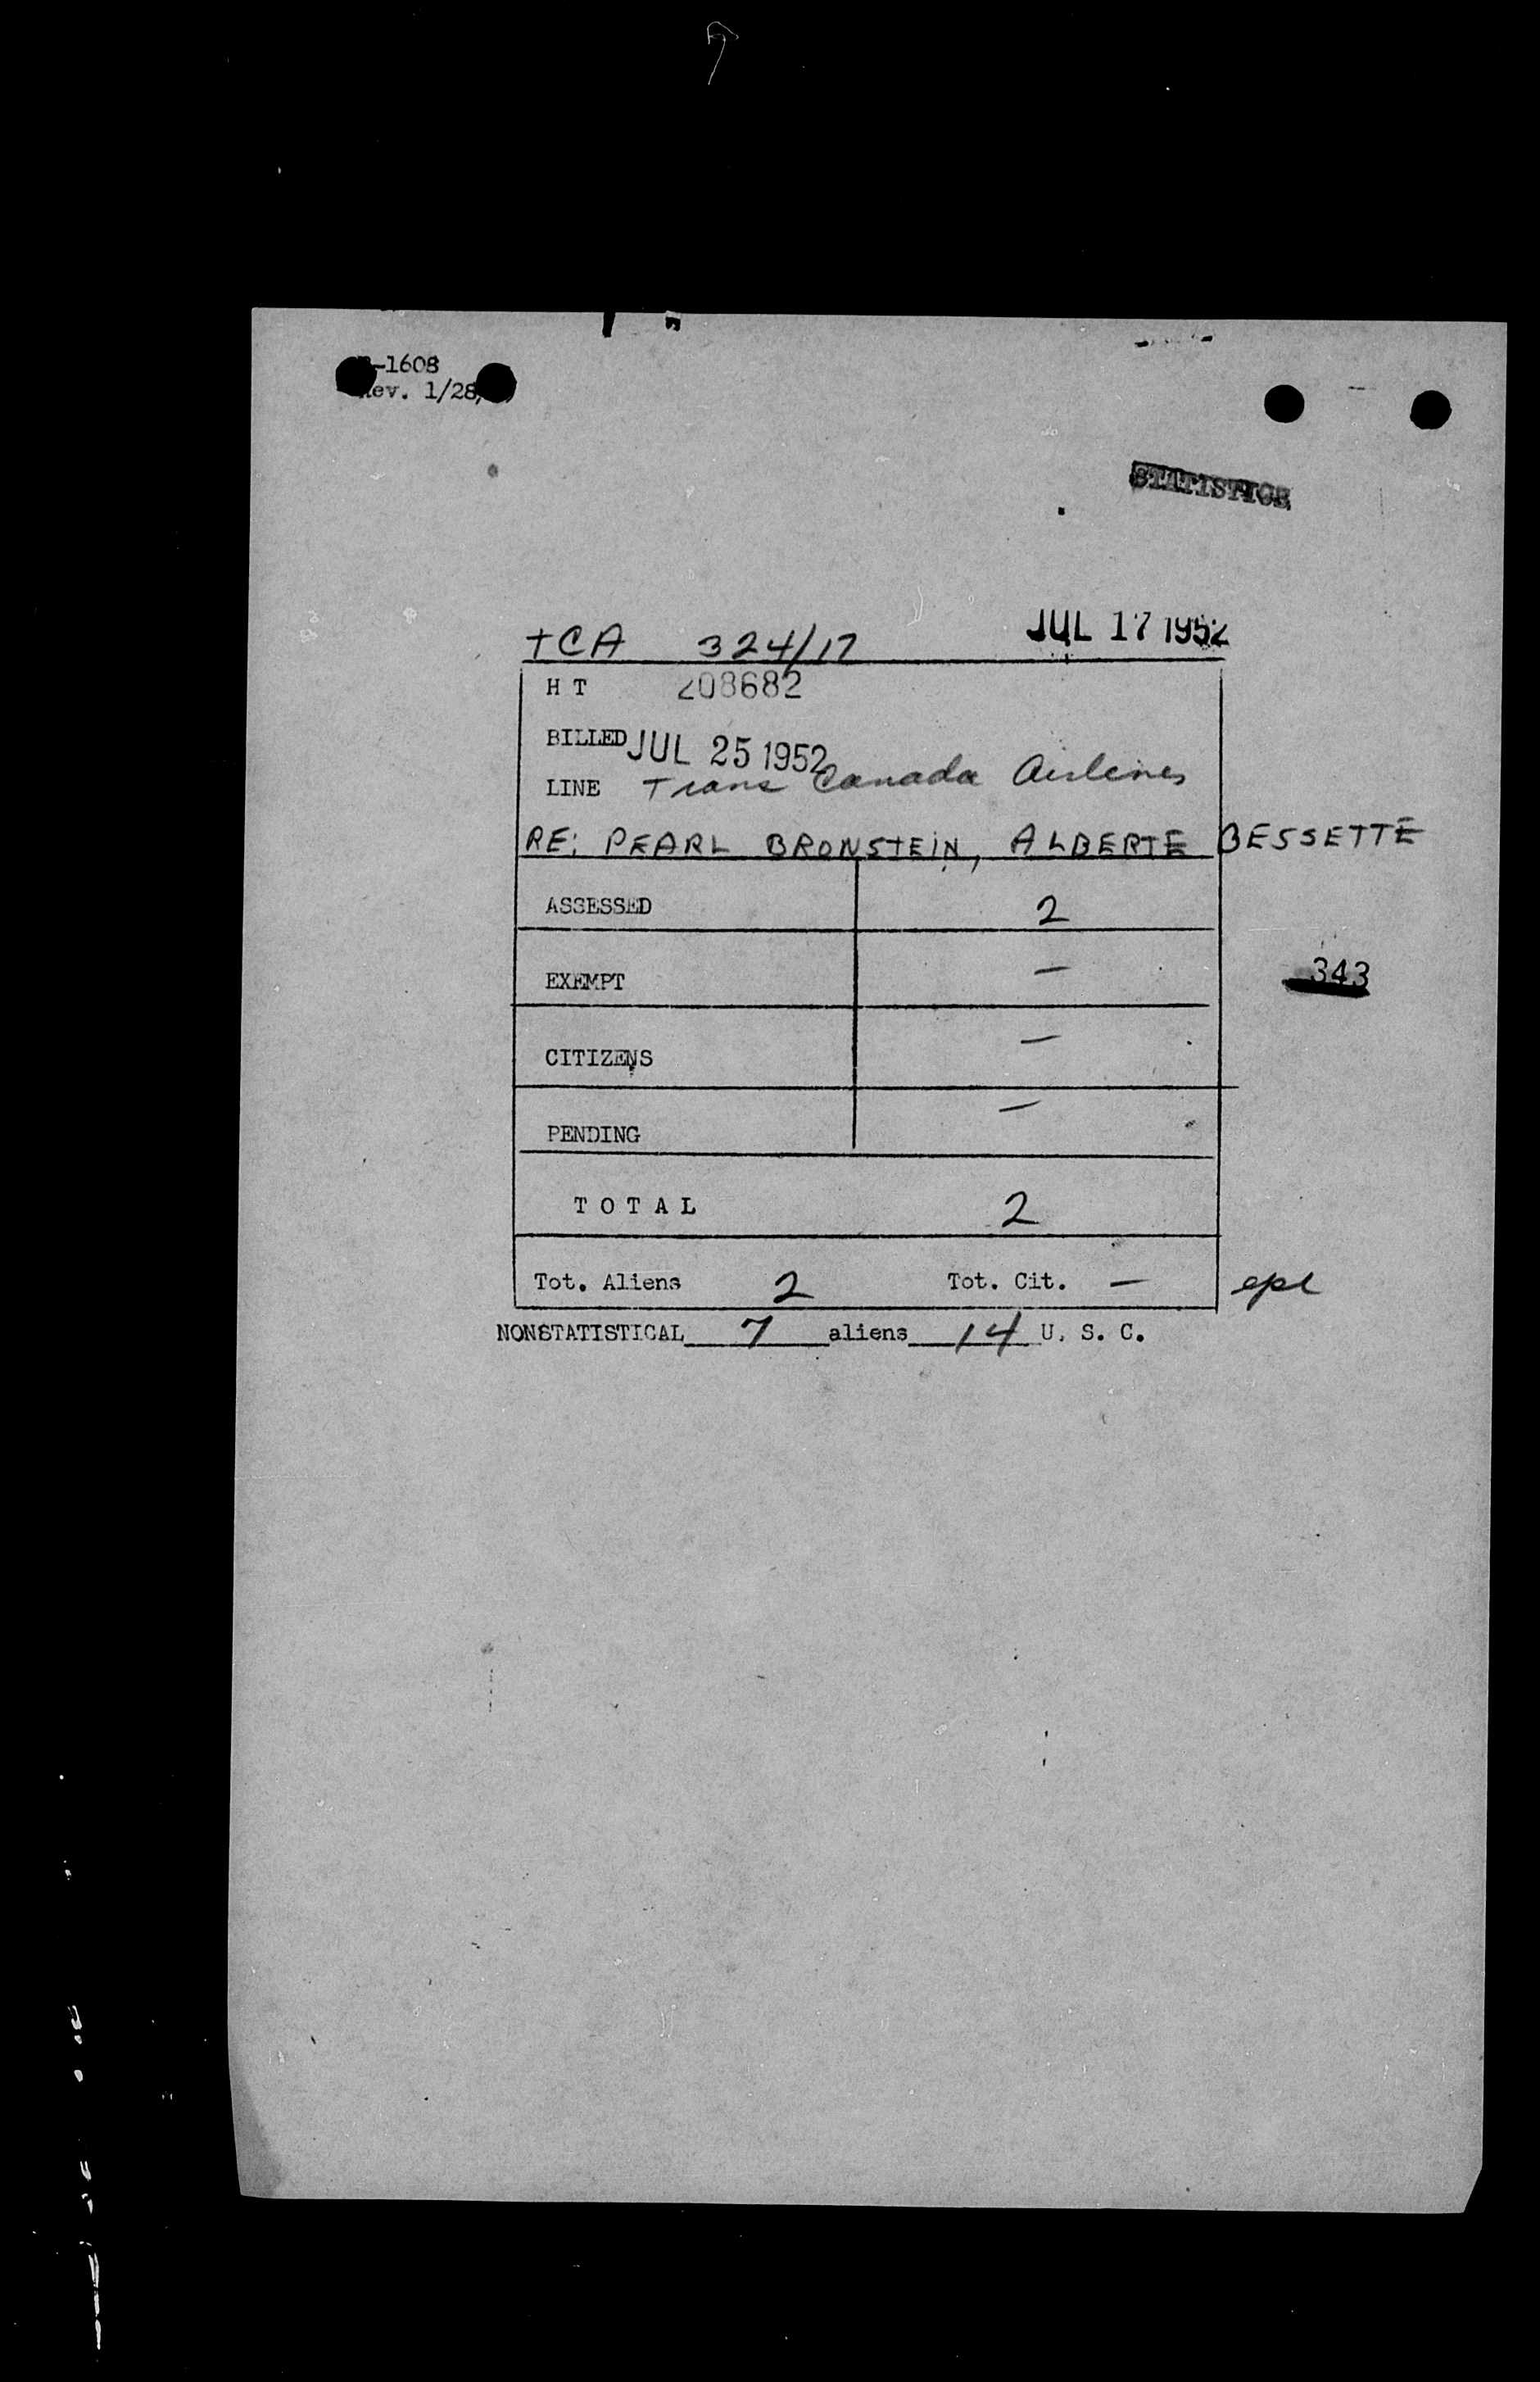 -1608
Rev. 1/28/
STATISTICS
TCA 324/17 JUL 17 1952
H T 208682
BILLED JUL 25 1952
LINE Trans Canada Airlines
RE: PEARL BRONSTEIN, ALBERTE BESSETTE
ASSESSED 2
EXEMPT —
343
CITIZENS —
PENDING —
T O T A L 2
Tot. Aliens 2 Tot. Cit. — epl
NONSTATISTICAL 7 aliens 14 U. S. C.